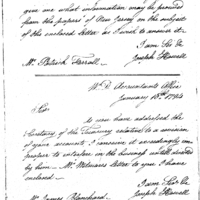 give me what information may be procured
from the papers of New Jersey on the subject
of the enclosed Letter as I wish to answer it
I am Sir &c
Joseph Howell
Mr. Patrick Ferrall
W. D. Accountants Office
January 10th 1794
Sir
have addressed the
Secretary of the Treasury relative to a
of your accounts I conceive it accordingly
to interfere in the business until
by him. Mr. Letter to you I have
enclosed.
I am Sir &c
Joseph Howell
Mr. James Blanchard